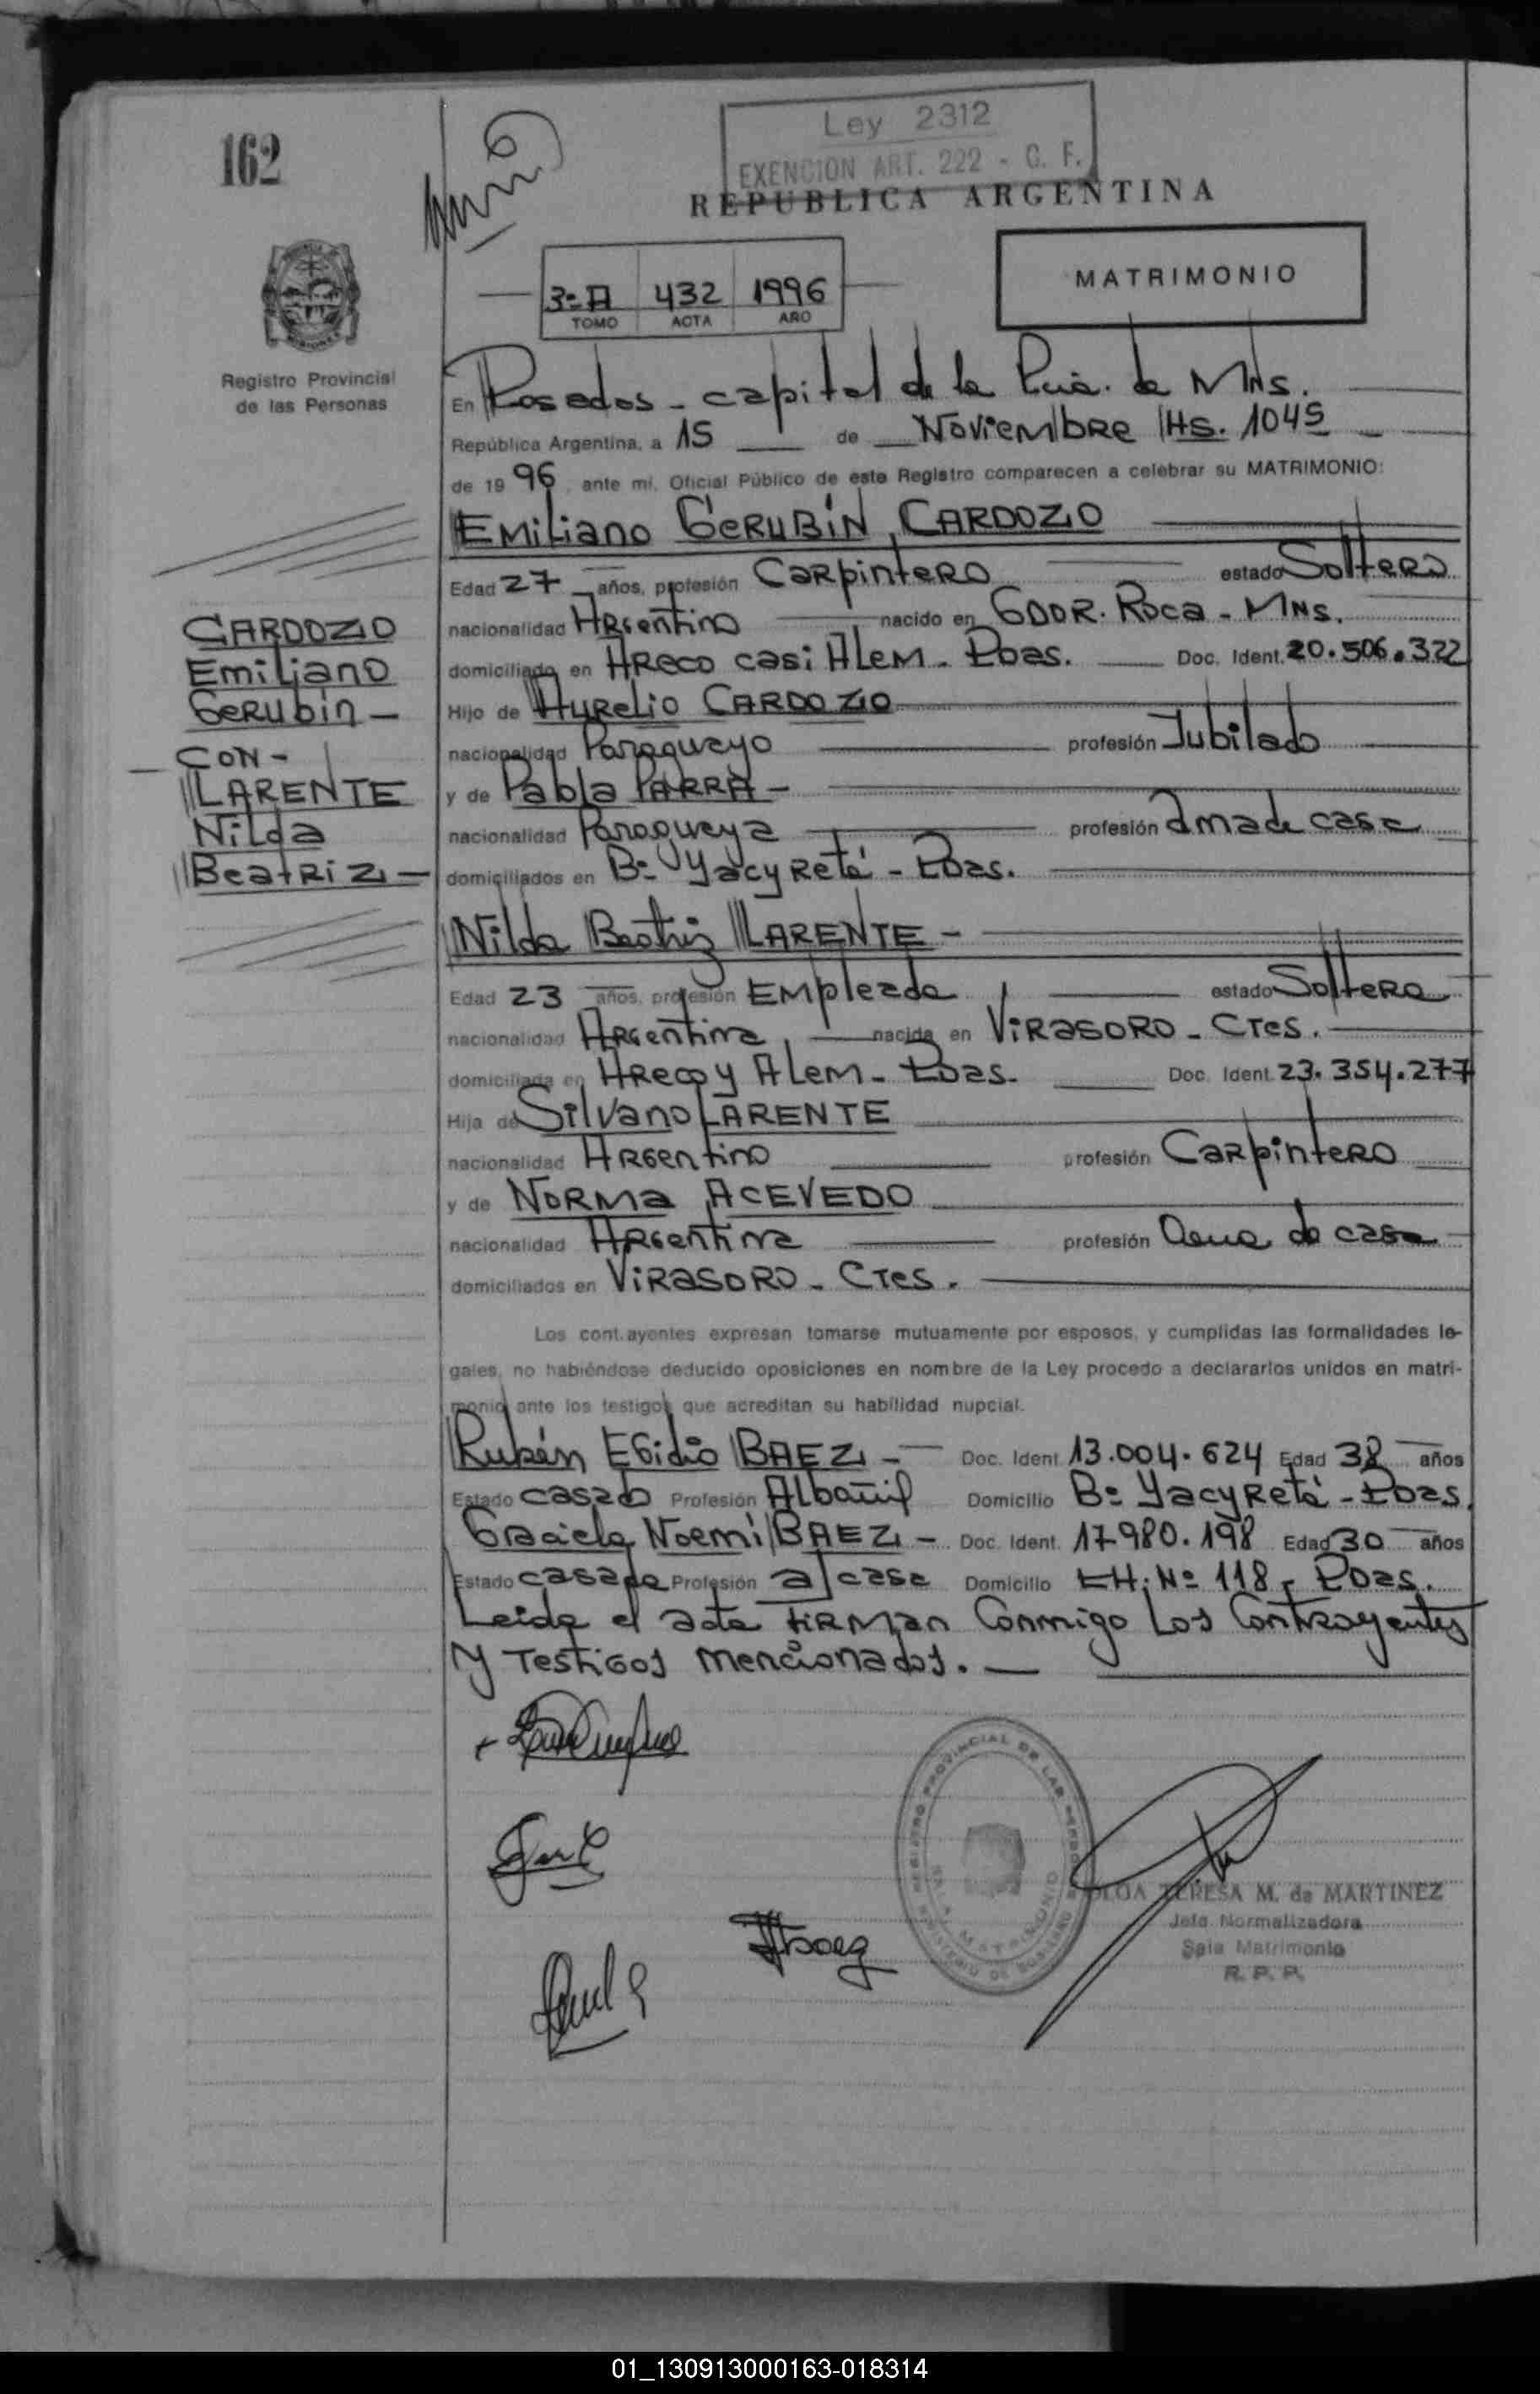 162
Ley 2312
EXENCION ART. 222 - C. F.
REPUBLICA ARGENTINA
3º A 432 1996
TOMO ACTA AÑO
MATRIMONIO
Registro Provincial
de las Personas
En Posadas - capital de la Pcia. de Mns.
República Argentina, a 15 de Noviembre Hs. 1045
de 1996, ante mí, Oficial Público de este Registro comparecen a celebrar su MATRIMONIO:
Emiliano Gerubín CARDOZO
Edad 27 años, profesión Carpintero estado Soltero
nacionalidad Argentino nacido en Gdor. Roca - Mns.
domiciliado en Areco casi Alem - Pdas. Doc. Ident. 20.506.322
Hijo de Aurelio CARDOZO
nacionalidad Paraguayo profesión Jubilado
y de Pabla PARRA -
nacionalidad Paraguaya profesión ama de casa
domiciliados en Bº Yacyretá - Pdas.
CARDOZO
Emiliano
Gerubín -
CON -
LARENTE
Nilda
Beatriz -
Nilda Beatriz LARENTE -
Edad 23 años, profesión Empleada estado Soltera
nacionalidad Argentina nacida en Virasoro - Ctes.
domiciliada en Areco y Alem - Pdas. Doc. Ident. 23.354.277
Hija de Silvano LARENTE
nacionalidad Argentino profesión Carpintero
y de Norma ACEVEDO
nacionalidad Argentina profesión Ama de casa
domiciliados en Virasoro - Ctes.
Los contrayentes expresan tomarse mutuamente por esposos, y cumplidas las formalidades le-
gales, no habiéndose deducido oposiciones en nombre de la Ley procedo a declararlos unidos en matri-
monio ante los testigos que acreditan su habilidad nupcial.
Rubén Egidio BAEZ - Doc. Ident. 13.004.624 Edad 38 años
Estado casado Profesión Albañil Domicilio Bº Yacyretá - Pdas.
Graciela Noemí BAEZ - Doc. Ident. 17.980.198 Edad 30 años
Estado casada Profesión a/casa Domicilio CH. Nº 118 - Pdas.
Leída el acta firman conmigo los contrayentes
y testigos mencionados. -
OLGA TERESA M. de MARTINEZ
Jefa Normalizadora
Sala Matrimonio
R. P. P.
01_130913000163-018314